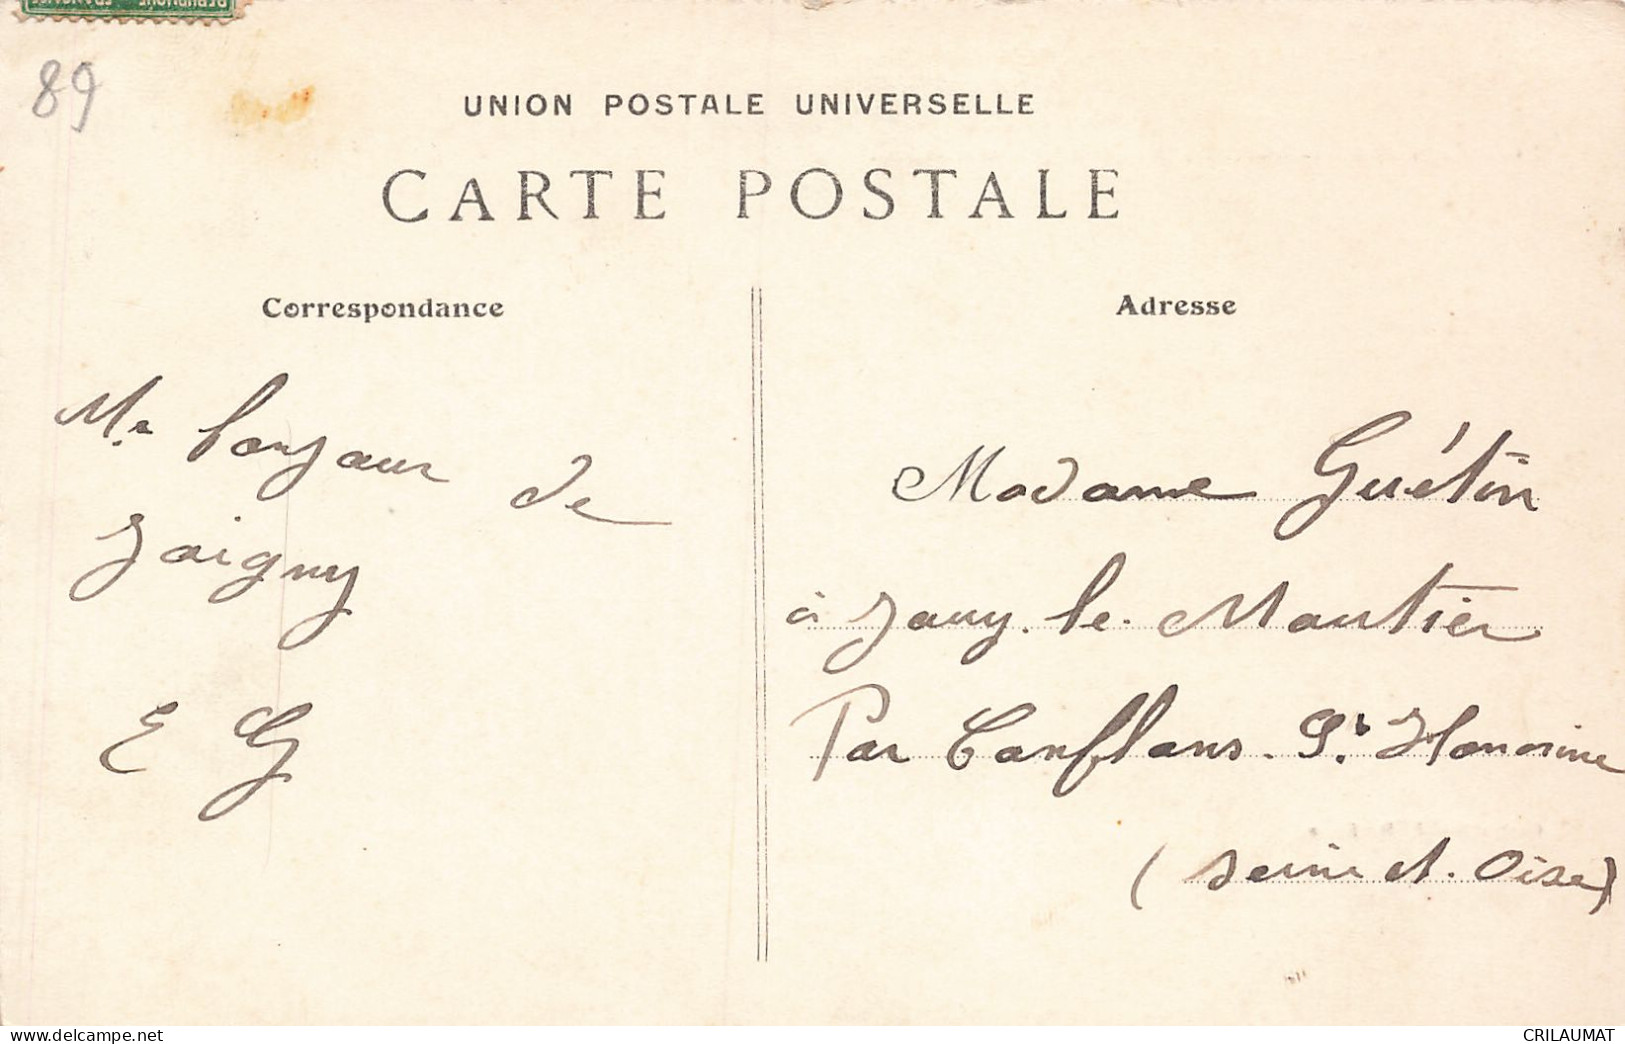 89
UNION POSTALE UNIVERSELLE
CARTE POSTALE
Correspondance
Adresse
Mr bonjour de
Joigny
E G
Madame Guétin
à Jouy. le. Moutier
Par Conflans. St. Honorine
(Seine et. Oise)
delcampe.net
CRILAUMAT